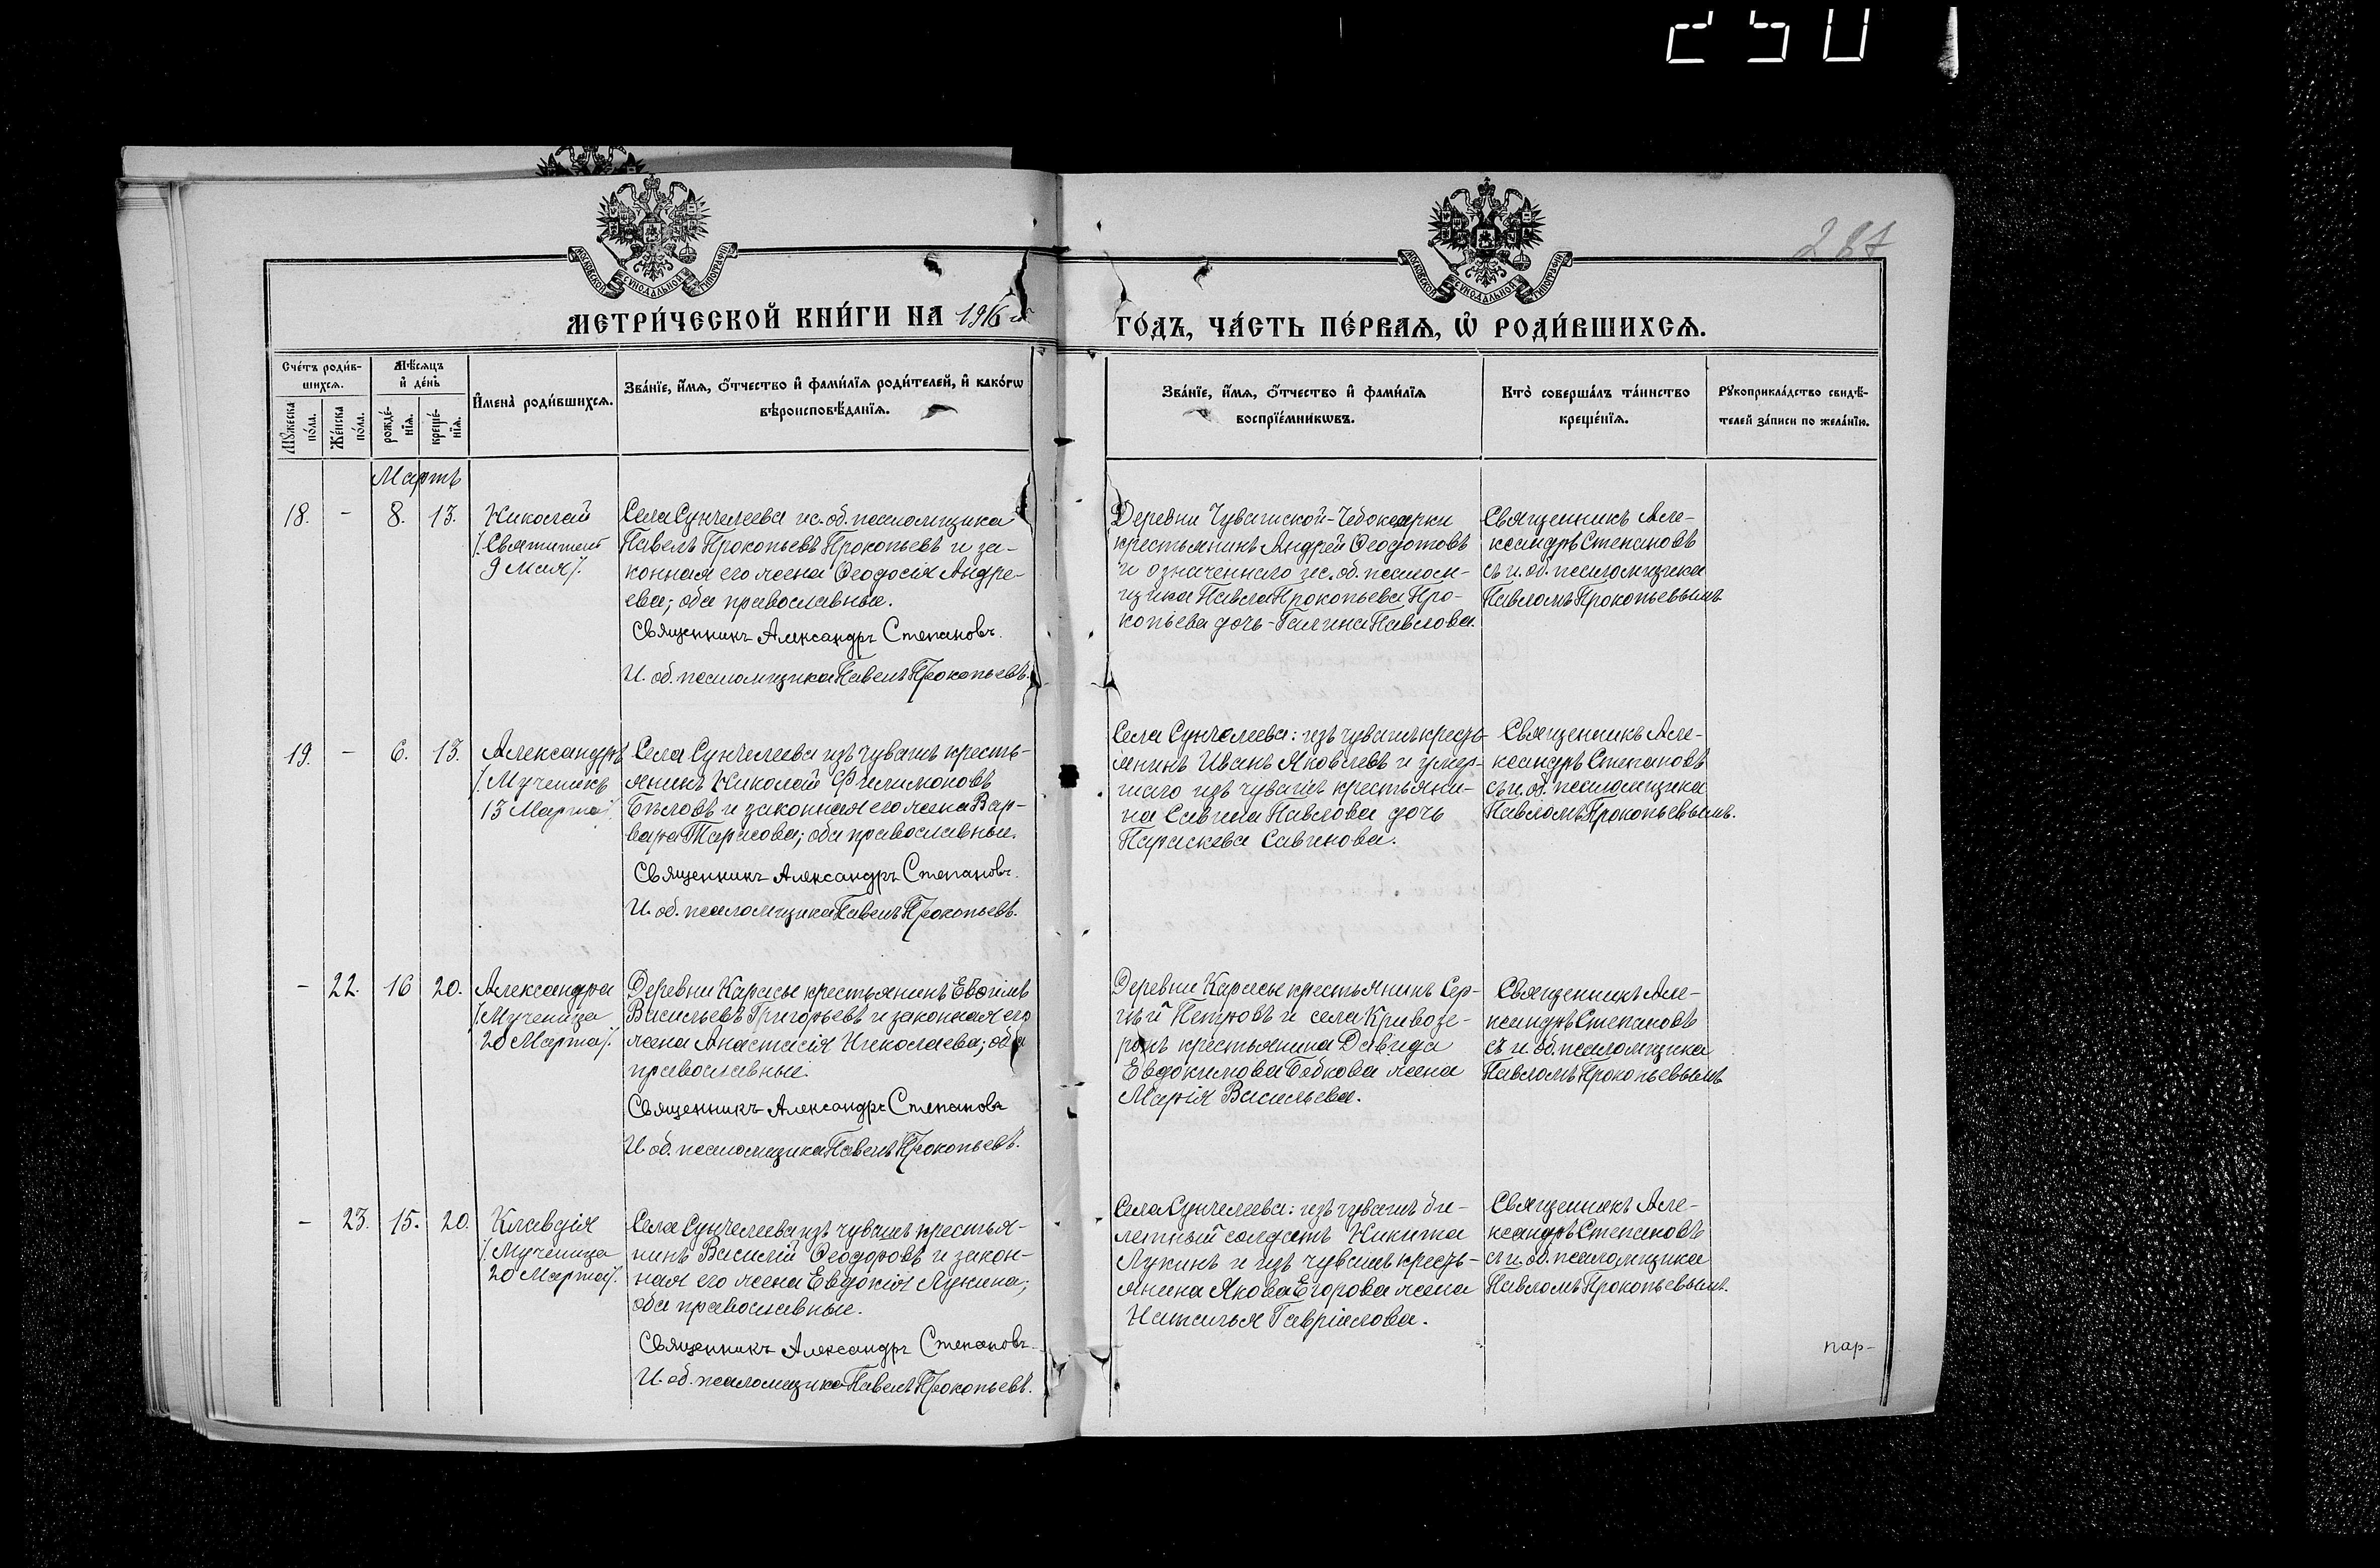 250
287
МОСКОВСКОЙ СѴНОДАЛЬНОЙ ТИПОГРАФІИ
МОСКОВСКОЙ СѴНОДАЛЬНОЙ ТИПОГРАФІИ
МЕТРИ́ЧЕСКОЙ КНИ́ГИ НА 1916 й
ГО́ДЪ, ЧА́СТЬ ПЕ́РВАѦ, Ѡ҆ РОДИ́ВШИХСѦ.
Сче́тъ роди́в-
шихсѧ.
Мꙋ́жеска по́ла.
Же́нска по́ла.
Мѣ́сѧцъ
и҆ де́нь
рожде́-
нїѧ.
креще́-
нїѧ.
И҆мена̀ роди́вшихсѧ.
Зва́нїе, и҆́мѧ, ѻ҆́тчество и҆ фами́лїѧ роди́телей, и҆ како́гѡ
вѣроисповѣ́данїѧ.
Зва́нїе, и҆́мѧ, ѻ҆́тчество и҆ фами́лїѧ
воспрїе́мникѡвъ.
Кто̀ соверша́лъ та́инство
креще́нїѧ.
Рꙋкоприкла́дство свидѣ́-
телей за́писи по жела́нїю.
Мартъ
18. - 8. 13.
Николай
/Святитель
9 Мая/.
Села Сунчелеева ис. об. псаломщика
Павелъ Прокопьевъ Прокопьевъ и за-
конная его жена Ѳеодосія Андре-
ева; оба православные.
Священникъ Александръ Степановъ.
И. об. псаломщика Павелъ Прокопьевъ.
Деревни Чувашской-Чебоксарки
крестьянинъ Андрей Ѳеодотовъ
и означеннаго ис. об. псалом-
щика Павла Прокопьева Про-
копьева дочь - Галина Павлова.
Священникъ Але-
ксандръ Степановъ
съ и. об. псаломщика
Павломъ Прокопьевымъ
19. - 6. 13.
Александръ
/Мученикъ
13 Марта/
Села Сунчелеева изъ чувашъ кресть-
янинъ Николай Филимоновъ
Бѣловъ и законная его жена Вар-
вара Тарасова; оба православные.
Священникъ Александръ Степановъ.
И. об. псаломщика Павелъ Прокопьевъ.
Села Сунчелеева: изъ чувашъ кресть-
янинъ Иванъ Яковлевъ и умер-
шаго изъ чувашъ крестьяни-
на Савина Павлова дочь
Параскева Савинова.
Священникъ Але-
ксандръ Степановъ
съ и. об. псаломщика
Павломъ Прокопьевымъ.
- 22. 16 20.
Александра
/Мученица
20 Марта/.
Деревни Карасы крестьянинъ Евѳимъ
Васильевъ Григорьевъ и законная его
жена Анастасія Николаева; оба
православные.
Священникъ Александръ Степановъ
И. об. псаломщика Павелъ Прокопьевъ.
Деревни Карасы крестьянинъ Сер-
гѣй Петровъ и села Кривозе-
рокъ крестьянина Давида
Евдокимова Бобкова жена
Марія Васильева.
Священникъ Але-
ксандръ Степановъ
съ и. об. псаломщика
Павломъ Прокопьевымъ
- 23. 15. 20.
Клавдія
/Мученица
20 Марта/.
Села Сунчелеева изъ чувашъ крестья-
нинъ Василій Ѳеодоровъ и закон-
ная его жена Евдокія Лукина;
оба православные.
Священникъ Александръ Степановъ.
И. об. псаломщика Павелъ Прокопьевъ.
Села Сунчелеева: изъ чувашъ би-
летный солдатъ Никита
Лукинъ и изъ чувашъ кресть-
янина Якова Егорова жена
Наталья Гавріилова.
Священникъ Але-
ксандръ Степановъ
съ и. об. псаломщика
Павломъ Прокопьевымъ.
пар-